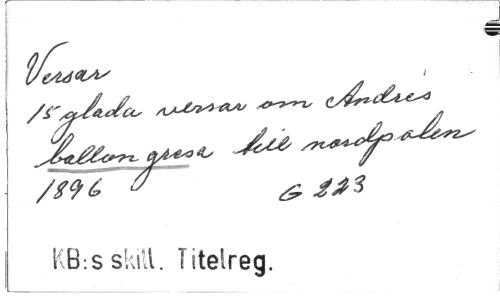 Versar
15 glada versar om Andrés
ballon gresa till nordpolen
1896 G 223
KB:s skill. Titelreg.